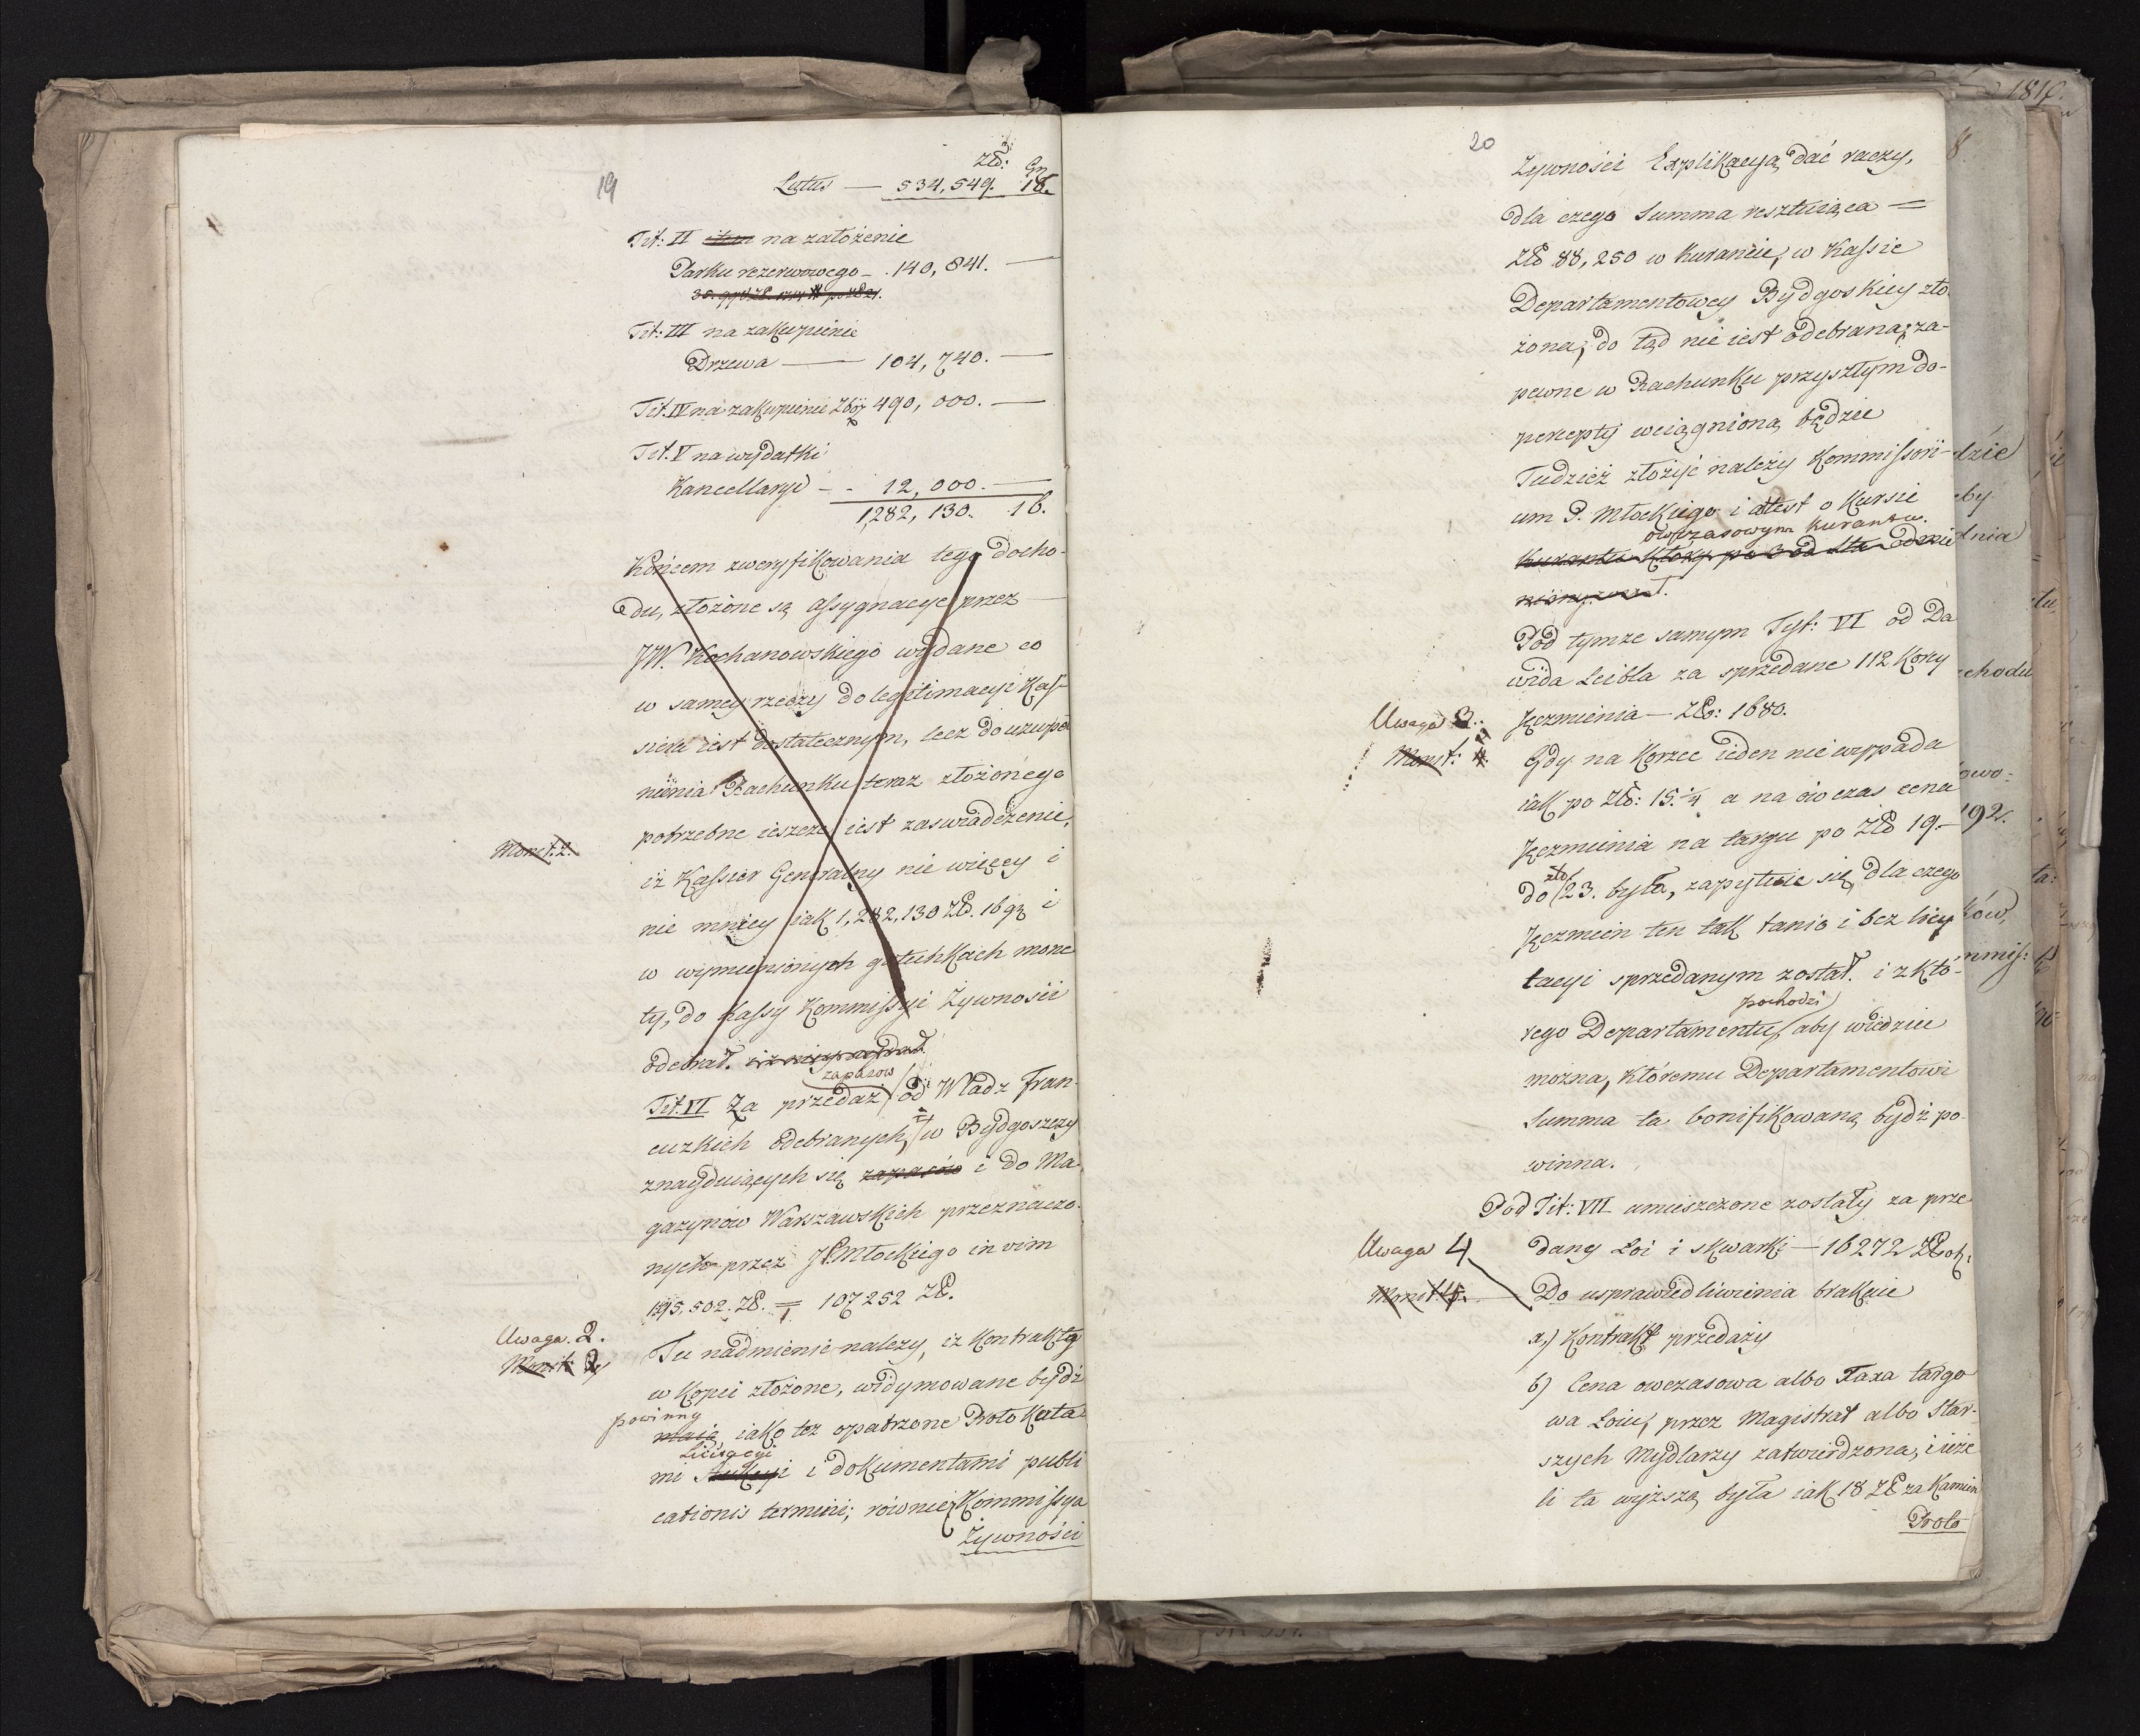 19
Zło: Gr
Latus — 534,549. 18.
Tit: II item na założenie
Parku rezerwowego — 140,841. —
Tit: III na zakupienie
Drzewa — 104,740. —
Tit. IV na zakupienie Zbóż 490,000. —
Tit. V na wydatki
Kancellaryi - - 12,000. —
1,282,130. 16.
Końcem zweryfikowania tego docho-
du, złożone są assygnacye przez
JW. Kochanowskiego wydane co
w samey rzeczy do legitimacyi Kas-
siera iest dostatecznym, lecz do uzupeł
nienia Rachunku teraz złożonego
potrzebne ieszcze iest zaswiadczenie,
Monit. 2.
iż Kassier Generalny nie więcey i
nie mniey iak 1,282,130 Zł. 16 gr i
w wymienionych gatunkach mone
ty, do Kassy Kommissyi Żywności
odebrał.
zapasow
Tit. VI Za przedaż od Władz Fran-
cuzkich odebranych, w Bydgoszczy
znayduiących się zapasów i do Ma-
gazynów Warszawskich przeznaczo-
nych przez JP. Młockiego in vim
195.502. Zł. = 107252 Zł.
Uwaga. 2.
Monit: 2
Tu nadmienić nalezy, iż Kontrakty
w Kopii złożone, widymowane bydź
powinny
maią, iako też opatrzone Protokóła
Licitacyi
mi Aukcyi i dokumentami publi
cationis termini; równiez Kommissya
Żywności
20
Zywności Explikacyą dać raczy,
dla czego Summa resztuiąca =
Zło 88,250 w Kurancie, w Kassie
Departamentowey Bydgoskiey zło
żona, do tąd nie iest odebrana; za-
pewne w Rachunku przyszłym do-
percepty wciągnioną będzie
Tudzież złożyć należy Kommissori-
um P. Młockiego i attest o Kursie
owczasowym kurantu.
Kurantu Który po
Pod tymze samym Tyt: VI od Da
wida Leibla za sprzedane 112 Korcy
Jęczmienia — Zło: 1680.
Uwaga 3.
Monit: 4.
Gdy na Korzec ieden nie wypada
iak po Zło: 15. a na ów czas cena
Jęczmienia na targu po Zło 19.—
zło
do 23. była, zapytuie się, dla czego
Jęczmień ten tak tanio i bez licy
tacyi sprzedanym został. i z któ-
pochodzi
rego Departamentu, aby wiedzieć
można, któremu Departamentowi
Summa ta bonifikowaną bydź po-
winna.
Pod Tit: VII umieszczone zostały za prze
dany Łoi i skwarki — 16272 Złot.
Uwaga 4
Monit: 5.
Do usprawiedliwienia brakuie
a.) Kontrakt przedaży
b) Cena owczasowa albo Taxa targo
wa Łoiu, przez Magistrat albo Star-
szych Mydlarzy zatwierdzona, i ieże
li ta wyższą była iak 18 Zł za Kamień
Proto